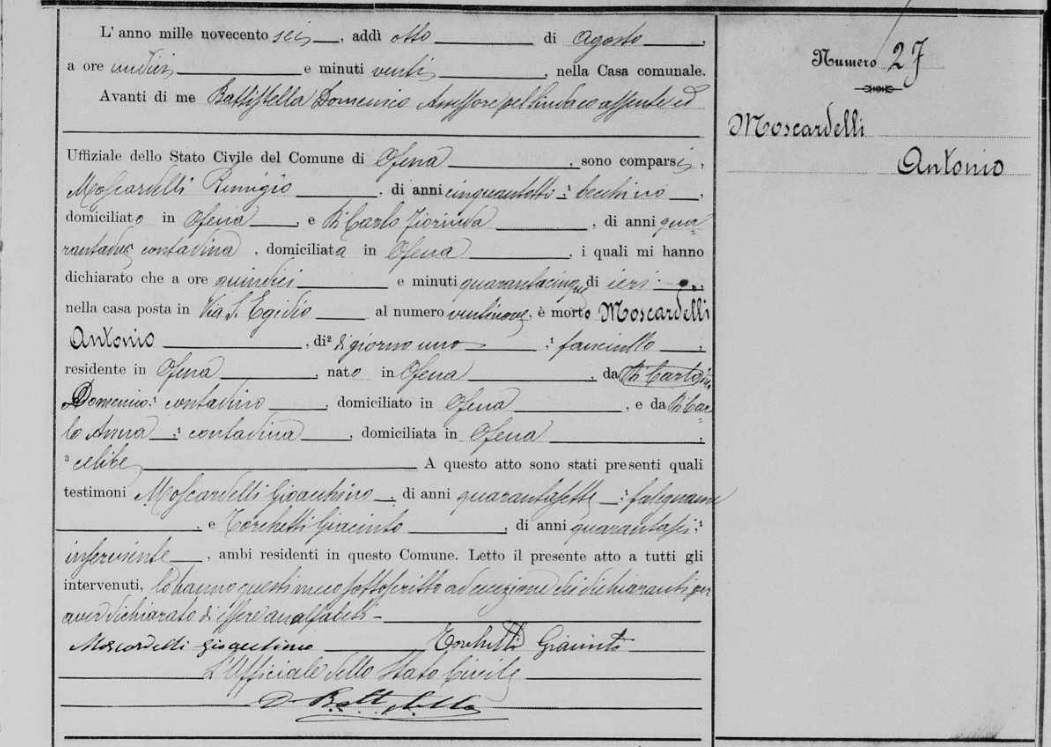 L'anno mille novecento sei, addì otto di Agosto,
a ore undici e minuti venti, nella Casa comunale.
Avanti di me Battistella Domenico Assessore pel Sindaco assente ed
Uffiziale dello Stato Civile del Comune di Ofena, sono comparsi,
Moscardelli Remigio, di anni cinquantotto : becchino,
domiciliato in Ofena, e Di Carlo Fiorinda, di anni qua-
rantadue contadina, domiciliata in Ofena, i quali mi hanno
dichiarato che a ore quindici e minuti quarantacinque di ieri :,
nella casa posta in Via S. Egidio al numero ventinove, è morto Moscardelli
Antonio, di giorno uno : fanciullo,
residente in Ofena, nato in Ofena, da
Domenico : contadino, domiciliato in Ofena, e da Di Car-
lo Anna : contadina, domiciliata in Ofena,
celibe A questo atto sono stati presenti quali
testimoni Moscardelli Gioacchino, di anni quarantasette : falegname
, e Torchetti Giacinto, di anni quarantasei :
inserviente, ambi residenti in questo Comune. Letto il presente atto a tutti gli
intervenuti, lo hanno questi meco sottoscritto ad eccezione dei dichiaranti per
aver dichiarato di essere analfabeti -
Moscardelli Gioacchino Torchetti Giacinto
L'Ufficiale dello Stato Civile
D Battistella
Numero 27
Moscardelli
Antonio